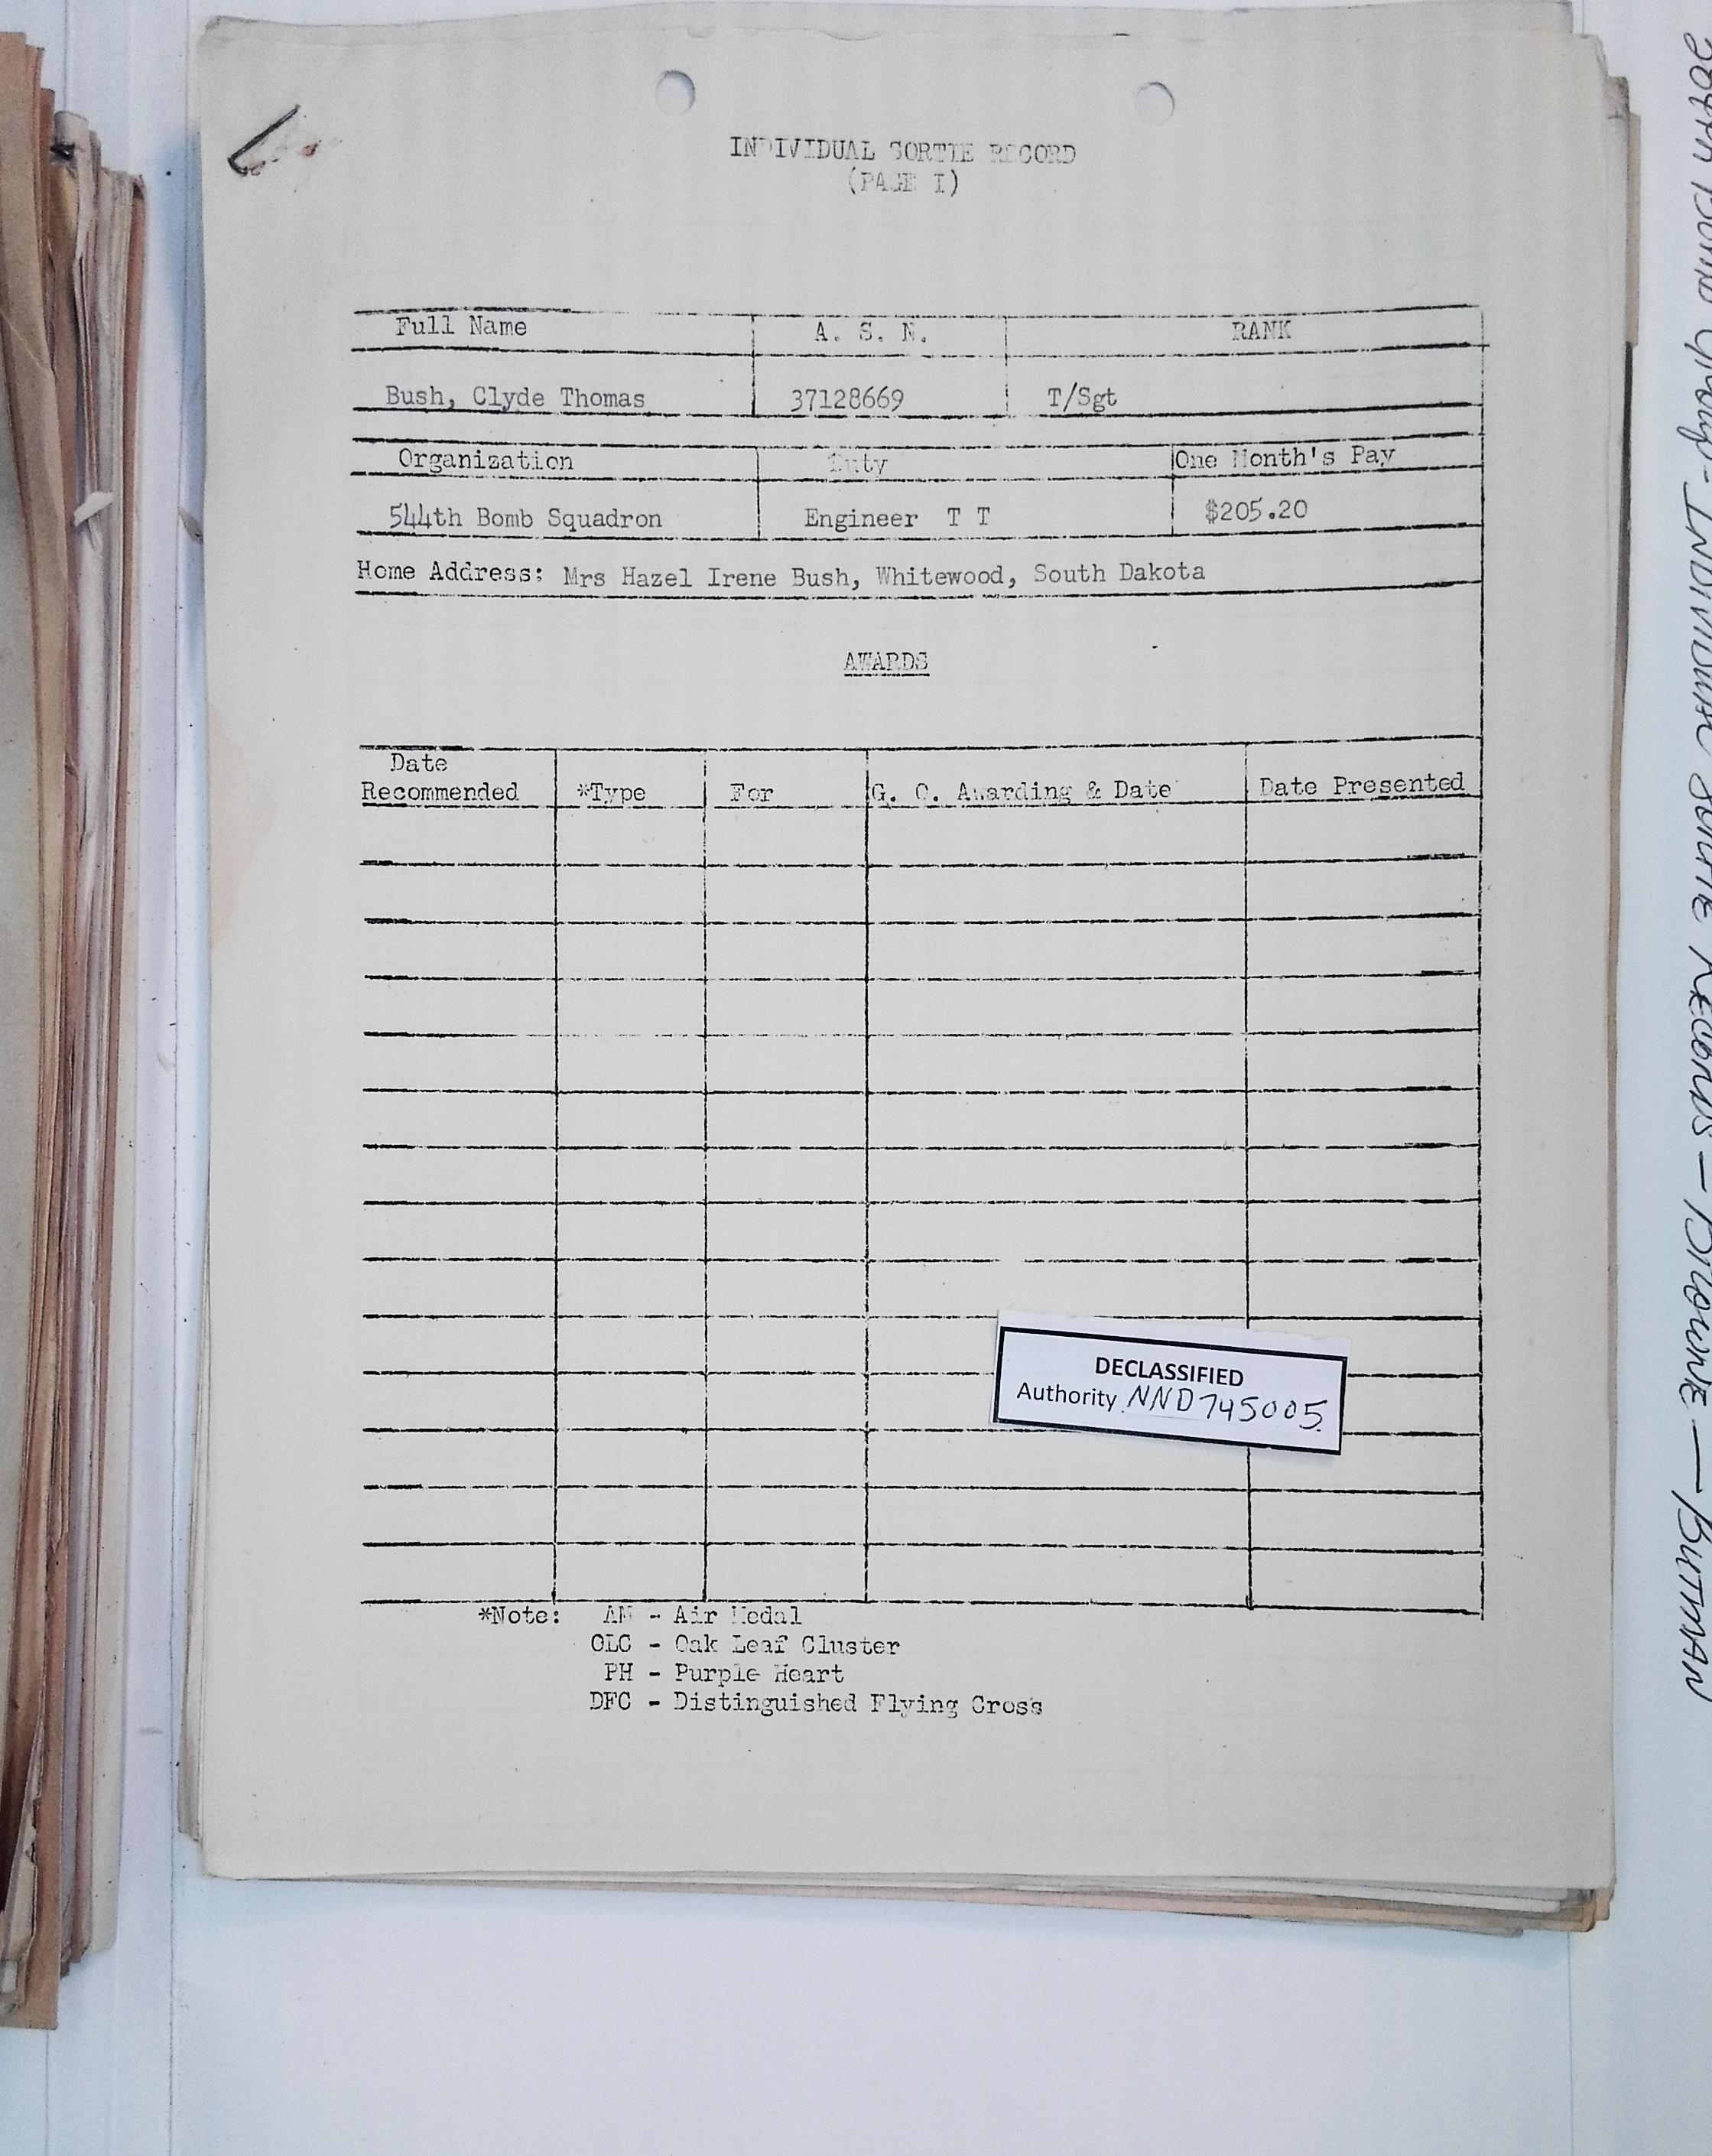 INDIVIDUAL SORTIE RECORD
(PAGE I)
Full Name A. S. N. RANK
Bush, Clyde Thomas 37128669 T/Sgt
Organization Duty One Month's Pay
544th Bomb Squadron Engineer T T $205.20
Home Address: Mrs Hazel Irene Bush, Whitewood, South Dakota
AWARDS
Date
Recommended *Type For G. O. Awarding & Date Date Presented
DECLASSIFIED
Authority NND745005
*Note: AM - Air Medal
OLC - Oak Leaf Cluster
PH - Purple Heart
DFC - Distinguished Flying Cross
Bomb Group - INDIVIDUAL SORTIE RECORDS - BROWNE - BUTMAN